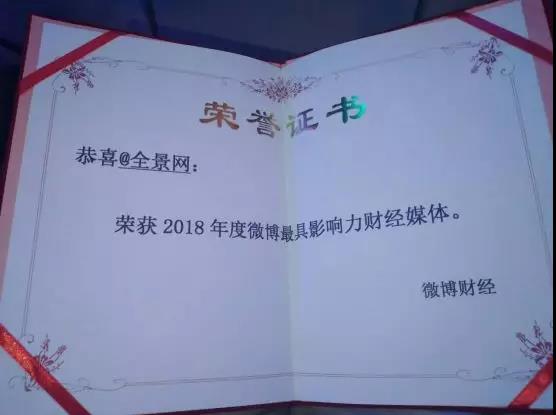 荣誉证书
恭喜@全景网：
荣获 2018 年度微博最具影响力财经媒体。
微博财经